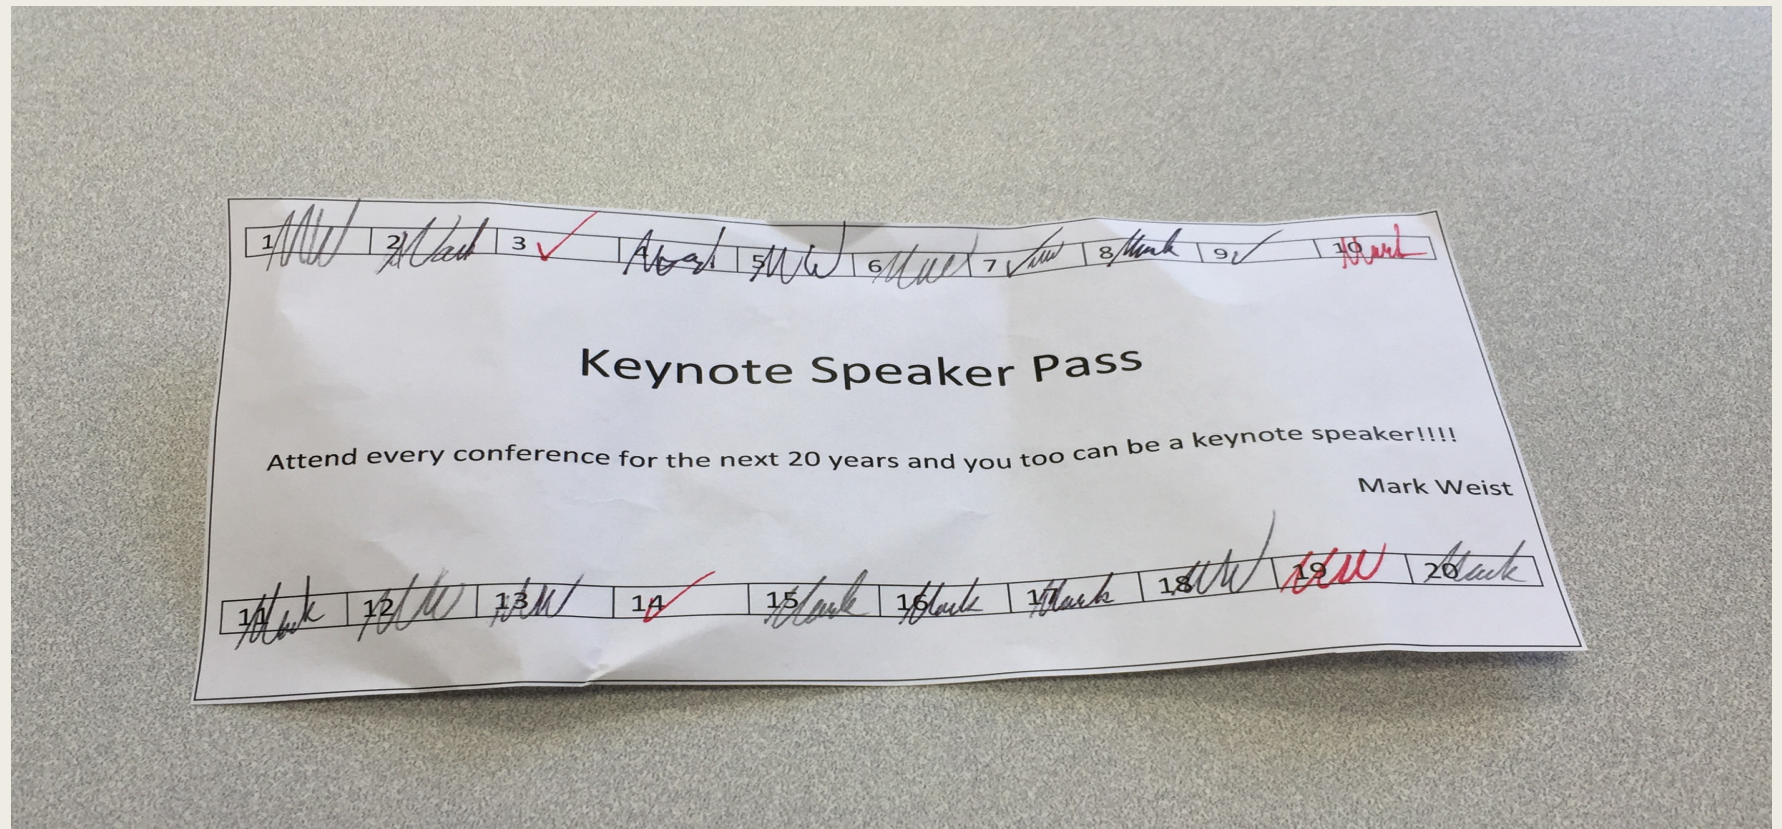 1 MW 2 Mark 3 ✓ 4 5 MW 6 Mark 7 ✓ MW 8 Mark 9 ✓ 10 Mark
Keynote Speaker Pass
Attend every conference for the next 20 years and you too can be a keynote speaker!!!!
Mark Weist
11 Mark 12 MW 13 MW 14 ✓ 15 Mark 16 Mark 17 Mark 18 MW 19 MW 20 Mark